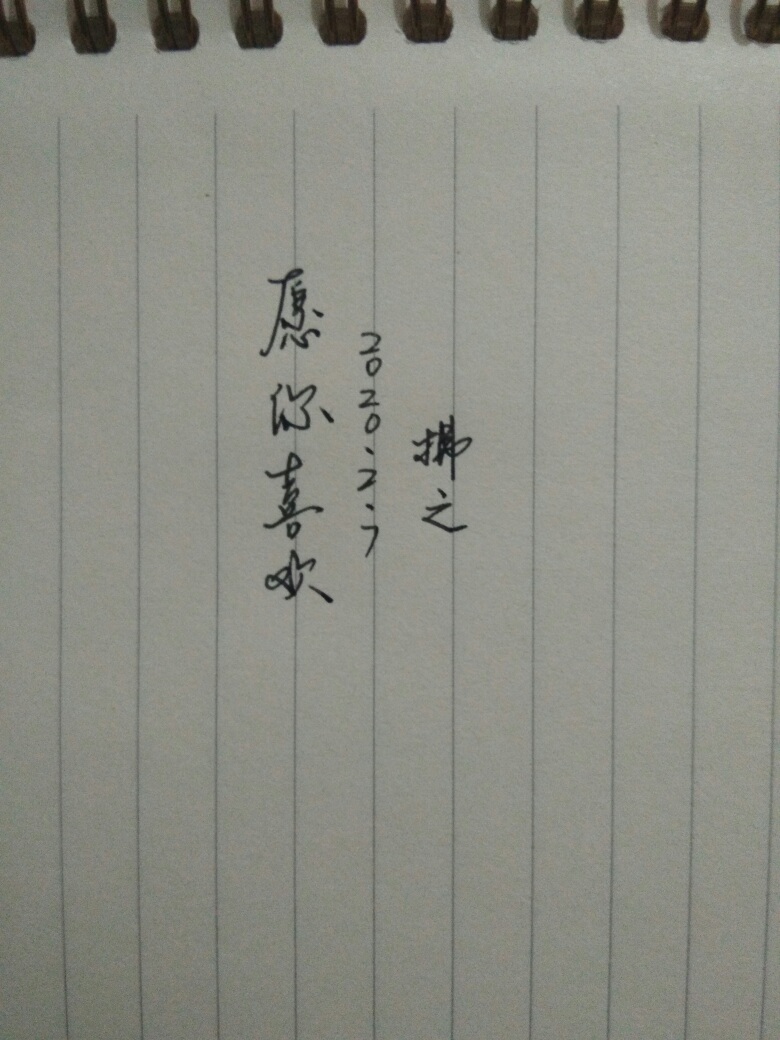 愿你喜欢
2020.2.7
拂之